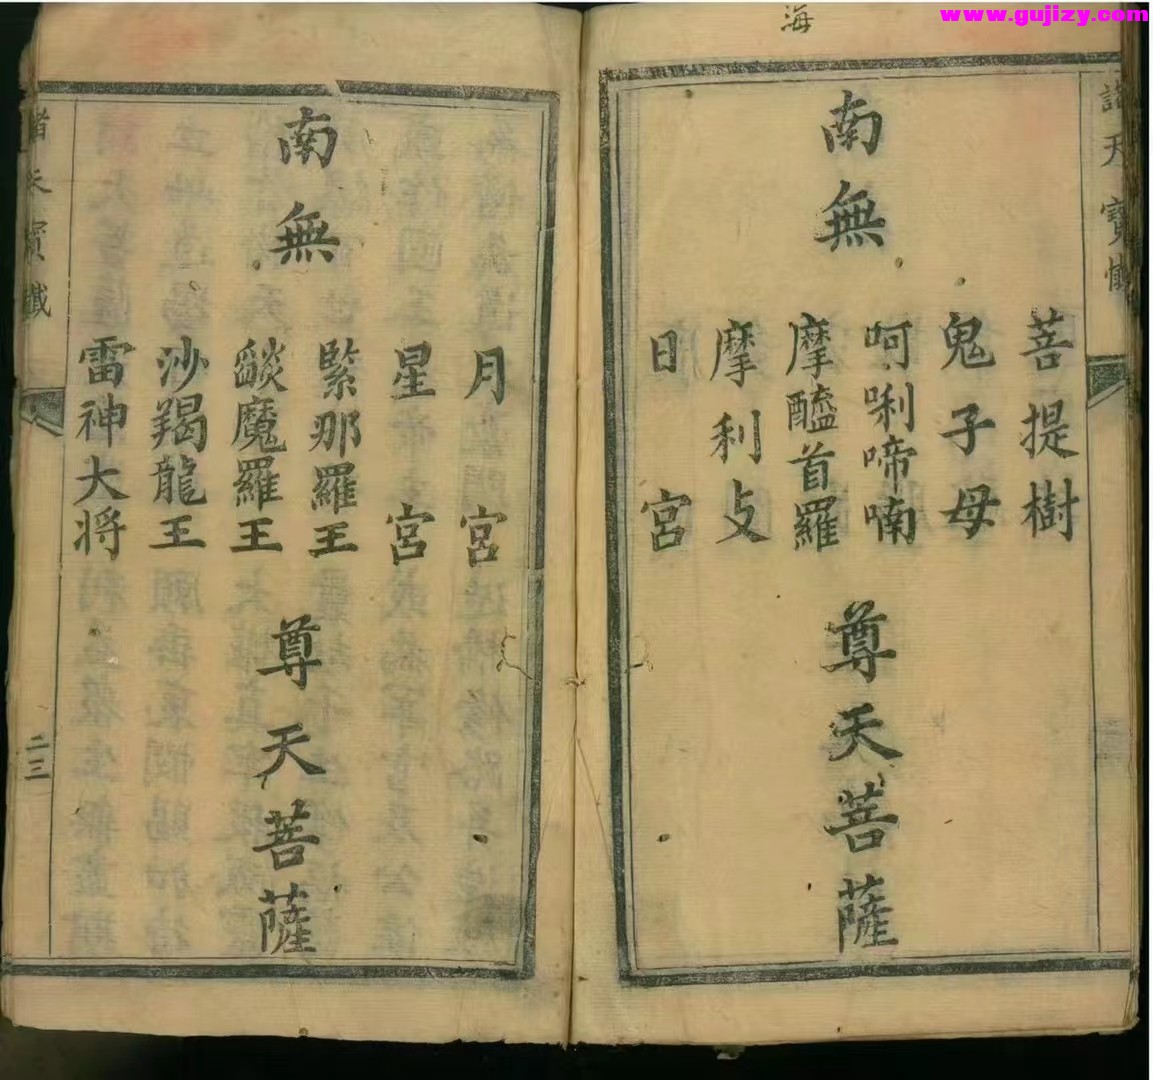 www.gujizy.com
海
諸天寶懺
南無
菩提樹
鬼子母
呵唎啼喃
摩醯首羅
摩利支
日宮
尊天菩薩
南無
月宮
星宮
緊那羅王
燄魔羅王
沙羯龍王
雷神大将
尊天菩薩
諸天寳懺
二三